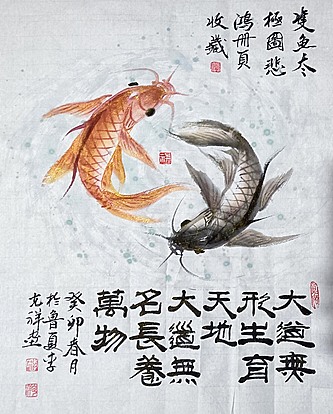 雙魚太
極圖悲
鴻册頁
收藏
大道無
形生育
天地
大道無
名長養
萬物
癸卯春月
於魯夏李
祥